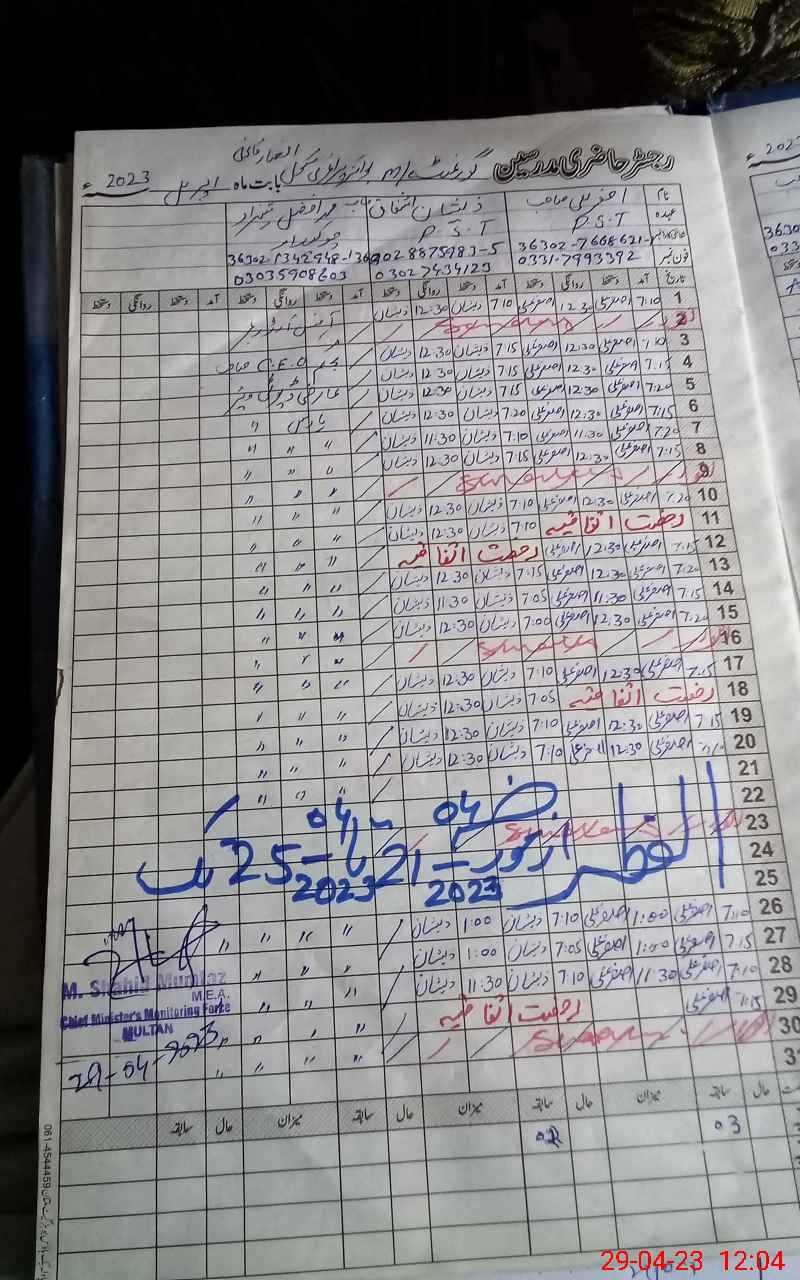 رجسٹر حاضری مدرسین گورنمنٹ بوائز پرائمری سکول بابت ماہ اپریل 2023ء
نام اصغر علی صاحب ذیشان اشفاق محمد افضل شہزاد
عہدہ P.S.T P.S.T چوکیدار
36302-7668621- 8875983-5
فون نمبر 0331-7993392 03027434123 03035908603
تاریخ آمد دستخط روانگی دستخط آمد دستخط روانگی دستخط آمد دستخط روانگی دستخط آمد دستخط روانگی دستخط
1 7:10 اصغر علی 12:30 اصغر علی 7:10 ذیشان 12:30 ذیشان
2 Sunday
3 7:10 اصغر علی 12:30 اصغر علی 7:15 ذیشان 12:30 ذیشان
4 7:15 اصغر علی 12:30 اصغر علی 7:15 ذیشان 12:30 ذیشان C.E.O صاحب
5 7:20 اصغر علی 12:30 اصغر علی 7:15 ذیشان 12:30 ذیشان
6 7:15 اصغر علی 12:30 اصغر علی 7:20 ذیشان 12:30 ذیشان
7 7:20 اصغر علی 11:30 اصغر علی 7:10 ذیشان 11:30 ذیشان " "
8 7:15 اصغر علی 12:30 اصغر علی 7:15 ذیشان 12:30 ذیشان " " "
9 اتوار Sunday " " "
10 7:20 اصغر علی 12:30 اصغر علی 7:10 ذیشان 12:30 ذیشان " " "
11 رخصت اتفاقیہ 7:10 ذیشان 12:30 ذیشان " " "
12 7:15 اصغر علی 12:30 اصغر علی رخصت اتفاقیہ " " "
13 7:20 اصغر علی 12:30 اصغر علی 7:15 ذیشان 12:30 ذیشان " " "
14 7:15 اصغر علی 11:30 اصغر علی 7:05 ذیشان 11:30 ذیشان " " "
15 7:20 اصغر علی 12:30 اصغر علی 7:00 ذیشان 12:30 ذیشان " " "
16 اتوار Sunday " " "
17 7:15 اصغر علی 12:30 اصغر علی 7:10 ذیشان 12:30 ذیشان " " "
18 رخصت اتفاقیہ 7:05 ذیشان 12:30 ذیشان " " "
19 7:15 اصغر علی 12:30 اصغر علی 7:10 ذیشان 12:30 ذیشان " " "
20 اصغر علی 12:30 اصغر علی 7:10 ذیشان 12:30 ذیشان " " "
21
22
23 Sunday
24
25
الفطر
21-04-2023 تا 25-04-2023 تک
26 7:10 اصغر علی 1:00 اصغر علی 7:10 ذیشان 1:00 ذیشان " " "
27 7:15 اصغر علی 1:00 اصغر علی 7:05 ذیشان 1:00 ذیشان " " "
28 7:10 اصغر علی 11:30 اصغر علی 7:10 ذیشان 11:30 ذیشان " " "
29 7:15 اصغر علی رخصت اتفاقیہ " " "
30 اتوار Sunday " " "
31
M. Shahid Mumtaz
M.E.A.
Chief Minister's Monitoring Force
MULTAN
29-04-2023
سابقہ حال میزان سابقہ حال میزان سابقہ حال میزان سابقہ حال
03 02
061-4544459
29-04-23 12:04